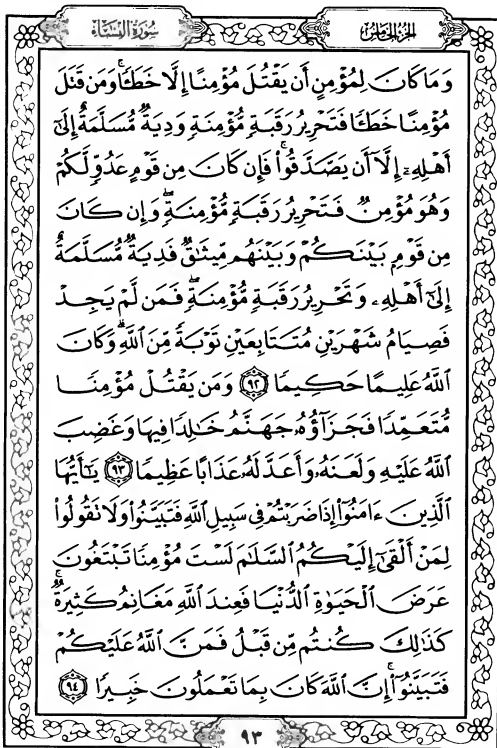 سُورَةُ النِّسَاءِ
الجُزْءُ الخَامِسُ
وَمَا كَانَ لِمُؤْمِنٍ أَن يَقْتُلَ مُؤْمِنًا إِلَّا خَطَـًٔا ۚ وَمَن قَتَلَ
مُؤْمِنًا خَطَـًٔا فَتَحْرِيرُ رَقَبَةٍ مُّؤْمِنَةٍ وَدِيَةٌ مُّسَلَّمَةٌ إِلَىٰٓ
أَهْلِهِۦٓ إِلَّآ أَن يَصَّدَّقُوا۟ ۚ فَإِن كَانَ مِن قَوْمٍ عَدُوٍّ لَّكُمْ
وَهُوَ مُؤْمِنٌ فَتَحْرِيرُ رَقَبَةٍ مُّؤْمِنَةٍ ۖ وَإِن كَانَ
مِن قَوْمٍۭ بَيْنَكُمْ وَبَيْنَهُم مِّيثَـٰقٌ فَدِيَةٌ مُّسَلَّمَةٌ
إِلَىٰٓ أَهْلِهِۦ وَتَحْرِيرُ رَقَبَةٍ مُّؤْمِنَةٍ ۖ فَمَن لَّمْ يَجِدْ
فَصِيَامُ شَهْرَيْنِ مُتَتَابِعَيْنِ تَوْبَةً مِّنَ ٱللَّهِ ۗ وَكَانَ
ٱللَّهُ عَلِيمًا حَكِيمًا ٩٢ وَمَن يَقْتُلْ مُؤْمِنًا
مُّتَعَمِّدًا فَجَزَآؤُهُۥ جَهَنَّمُ خَـٰلِدًا فِيهَا وَغَضِبَ
ٱللَّهُ عَلَيْهِ وَلَعَنَهُۥ وَأَعَدَّ لَهُۥ عَذَابًا عَظِيمًا ٩٣ يَـٰٓأَيُّهَا
ٱلَّذِينَ ءَامَنُوٓا۟ إِذَا ضَرَبْتُمْ فِى سَبِيلِ ٱللَّهِ فَتَبَيَّنُوا۟ وَلَا تَقُولُوا۟
لِمَنْ أَلْقَىٰٓ إِلَيْكُمُ ٱلسَّلَـٰمَ لَسْتَ مُؤْمِنًا تَبْتَغُونَ
عَرَضَ ٱلْحَيَوٰةِ ٱلدُّنْيَا فَعِندَ ٱللَّهِ مَغَانِمُ كَثِيرَةٌ ۚ
كَذَٰلِكَ كُنتُم مِّن قَبْلُ فَمَنَّ ٱللَّهُ عَلَيْكُمْ
فَتَبَيَّنُوٓا۟ ۚ إِنَّ ٱللَّهَ كَانَ بِمَا تَعْمَلُونَ خَبِيرًا ٩٤
٩٣